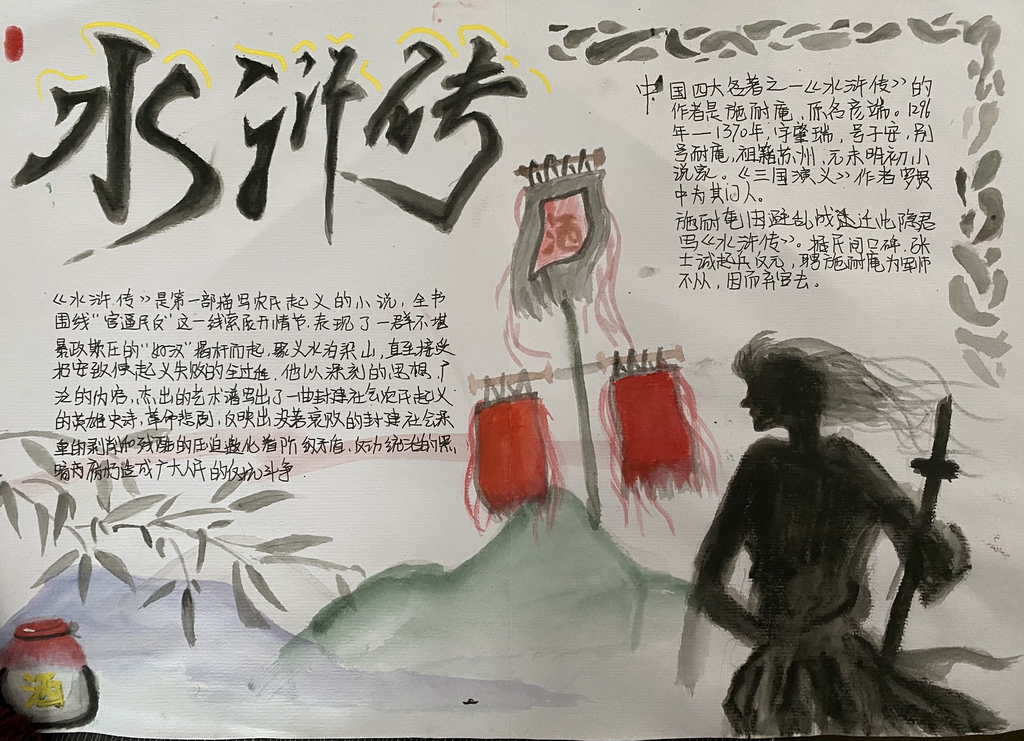 水浒砖
中国四大名著之一《水浒传》的
作者是施耐庵,原名彦端。1296
年—1370年,字肇瑞,号子安,别
号耐庵,祖籍苏州,元末明初小
说家。《三国演义》作者罗贯
中为其门人。
施耐庵因避乱或迁此隐居
写《水浒传》。据民间口碑,张
士诚起兵反元,聘施耐庵为军师
不从,因而弃官去。
酒
《水浒传》是第一部描写农民起义的小说,全书
围线"官逼民反"这一线索展开情节,表现了一群不堪
暴政欺压的"好汉"揭杆而起,聚义水泊梁山,直至接受
招安致使起义失败的全过程。他以深刻的思想,广
泛的内容,杰出的艺术谱写出了一曲封建社会农民起义
的英雄史诗,革命悲剧,反映出没落衰败的封建社会
的剥削和残酷的压迫
暗内 造成广大人民的反抗斗争.
酒